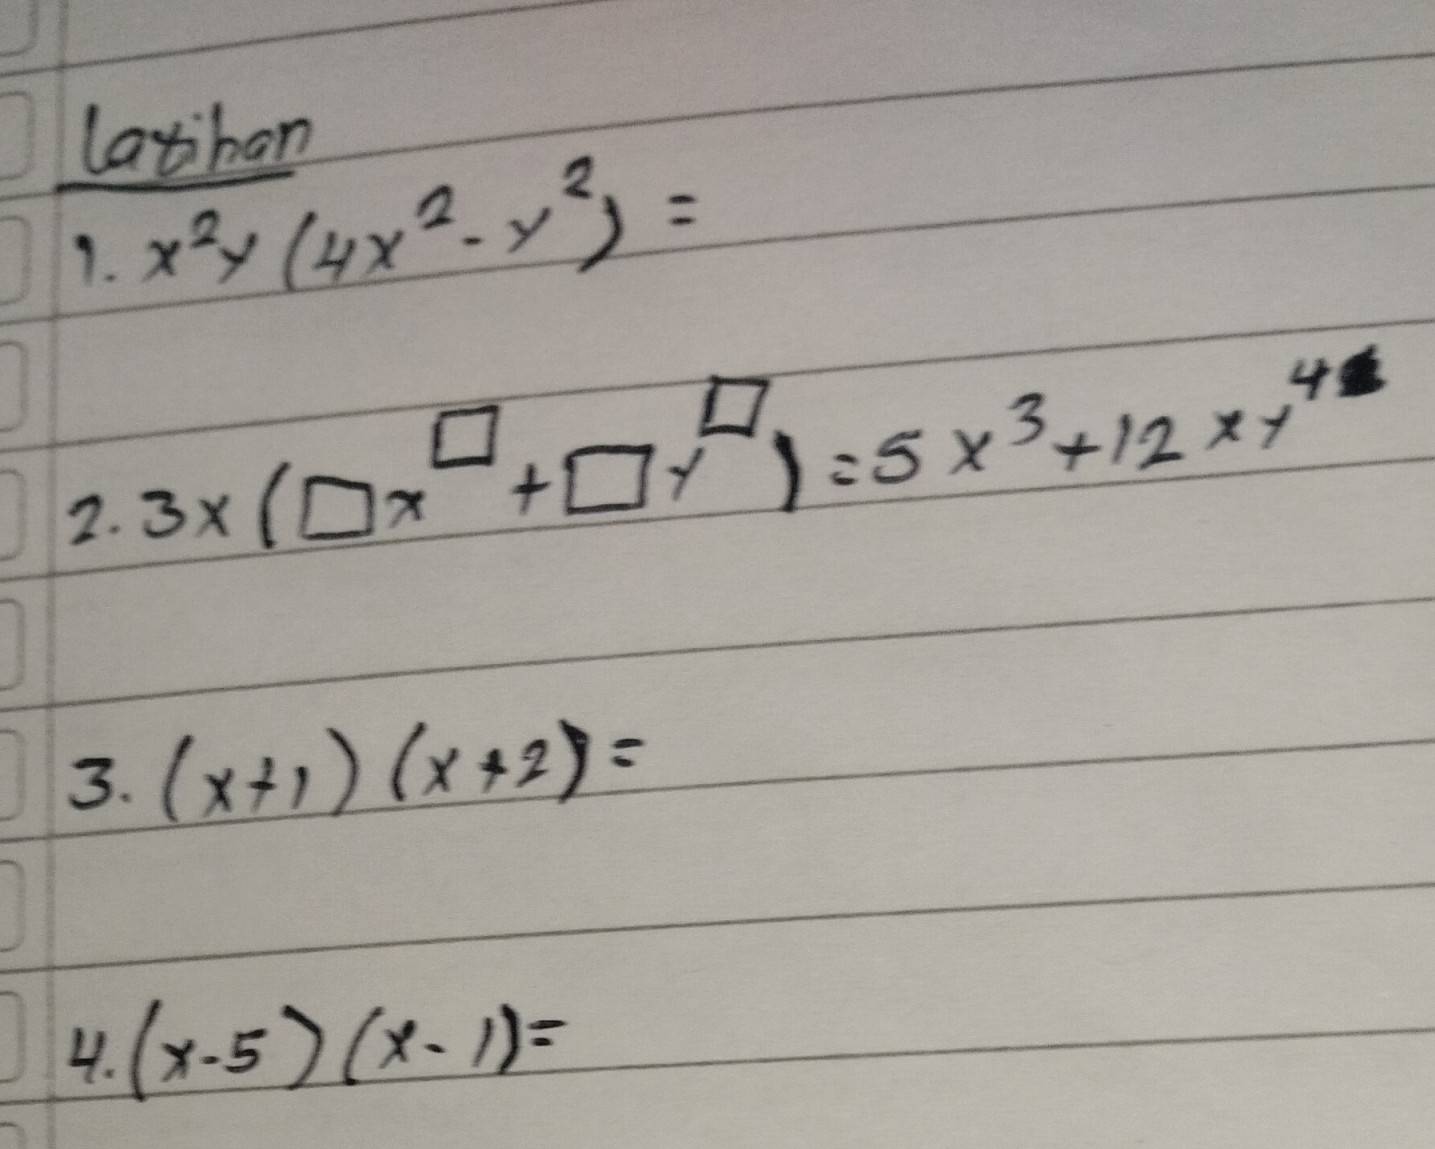 Latihan
1. x²y (4x² - y²) =
2. 3x (□x^□ + □y^□) = 5x³ + 12xy⁴
3. (x+1) (x+2) =
4. (x-5) (x-1) =